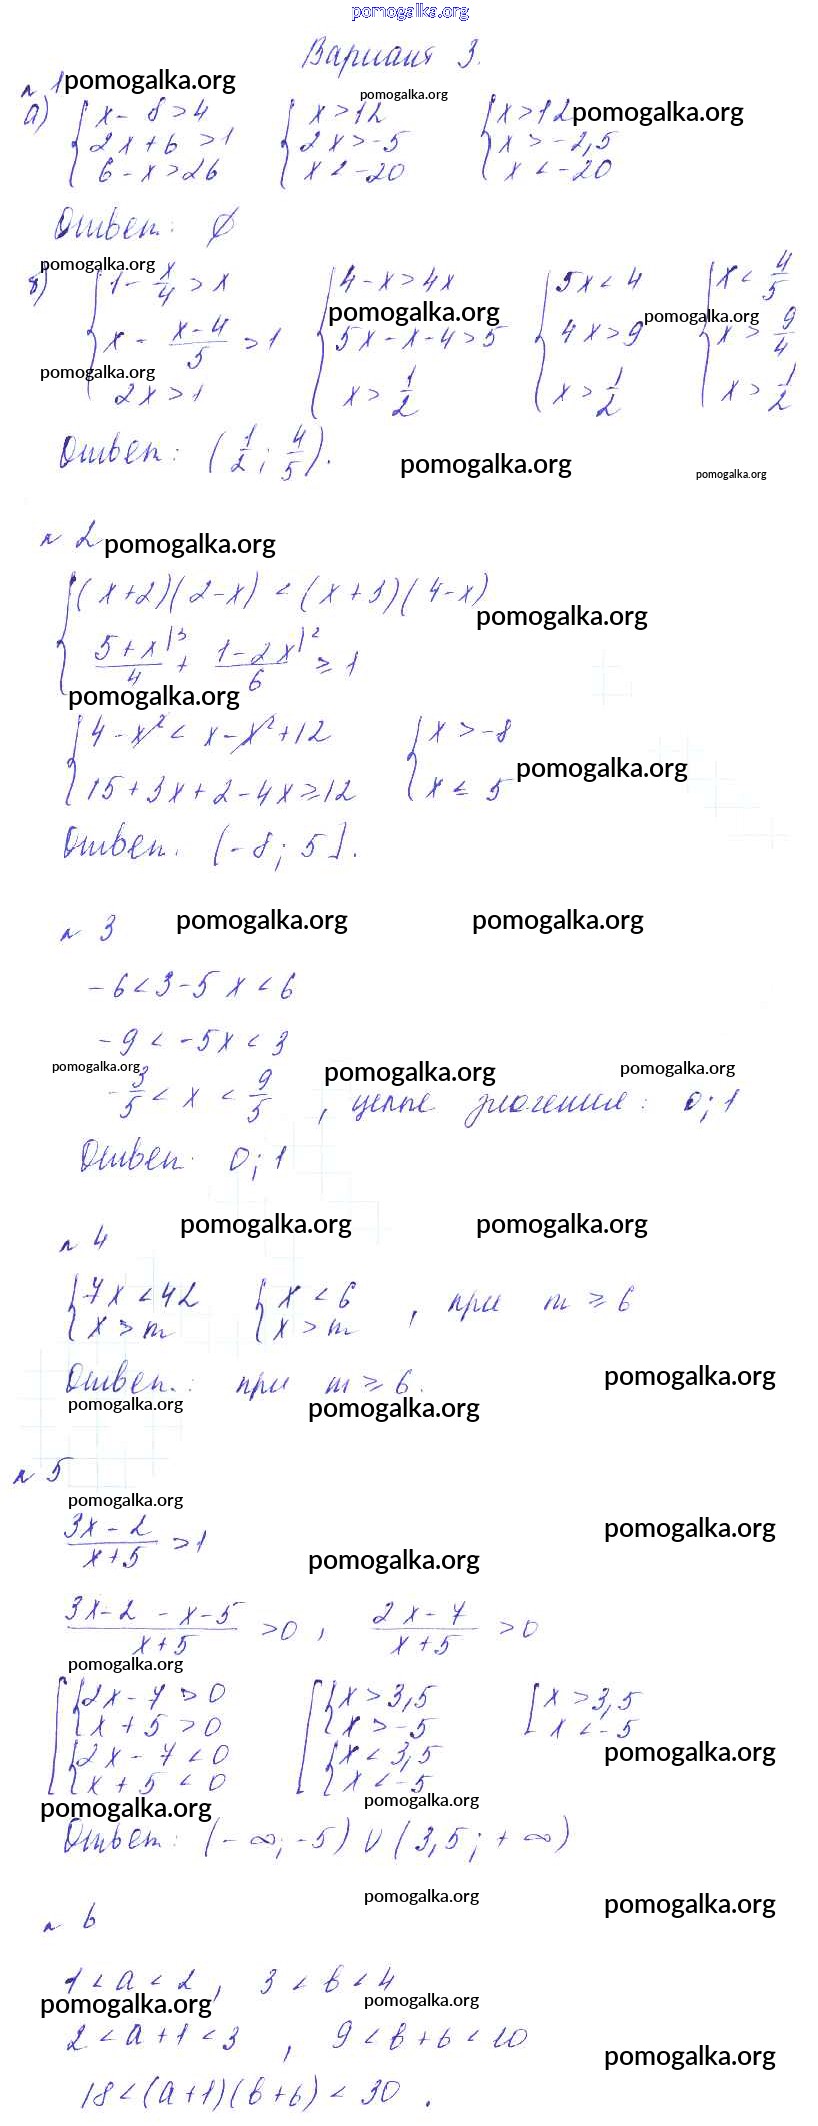 pomogalka.org
Вариант 3.
№ 1 pomogalka.org
pomogalka.org
а) { x - 8 > 4 { x > 12 { x > 12 pomogalka.org
2x + 6 > 1 2x > -5 x > -2,5
6 - x > 26 x < -20 x < -20
Ответ: ∅
pomogalka.org
б) { 1 - x/4 > x { 4 - x > 4x { 5x < 4 { x < 4/5
pomogalka.org pomogalka.org
x - (x-4)/5 > 1 5x - x - 4 > 5 4x > 9 x > 9/4
pomogalka.org
2x > 1 x > 1/2 x > 1/2 x > 1/2
Ответ: (1/2; 4/5).
pomogalka.org pomogalka.org
№ 2 pomogalka.org
{ (x+2)(2-x) < (x+3)(4-x)
pomogalka.org
(5+x)/4 |3 + (1-2x)/6 |2 ≥ 1
pomogalka.org
{ 4 - x² < x - x² + 12 { x > -8
pomogalka.org
15 + 3x + 2 - 4x ≥ 12 x ≤ 5
Ответ: (-8; 5].
№ 3 pomogalka.org pomogalka.org
-6 < 3 - 5x < 6
-9 < -5x < 3
pomogalka.org pomogalka.org pomogalka.org
-3/5 < x < 9/5 , целые значения: 0; 1
Ответ: 0; 1
№ 4 pomogalka.org pomogalka.org
{ 7x < 42 { x < 6 , при m ≥ 6
x > m x > m
Ответ.: при m ≥ 6.
pomogalka.org
pomogalka.org pomogalka.org
№ 5
pomogalka.org
(3x - 2)/(x + 5) > 1
pomogalka.org
pomogalka.org
(3x - 2 - x - 5)/(x + 5) > 0 , (2x - 7)/(x + 5) > 0
pomogalka.org
[ { 2x - 7 > 0 [ { x > 3,5 [ x > 3,5
x + 5 > 0 x > -5 x < -5
{ 2x - 7 < 0 { x < 3,5 pomogalka.org
x + 5 < 0 x < -5
pomogalka.org pomogalka.org
Ответ: (-∞; -5) ∪ (3,5; +∞)
pomogalka.org pomogalka.org
№ 6
1 < a < 2, 3 < b < 4
pomogalka.org pomogalka.org
2 < a + 1 < 3 , 9 < b + 6 < 10
pomogalka.org
18 < (a+1)(b+6) < 30 .